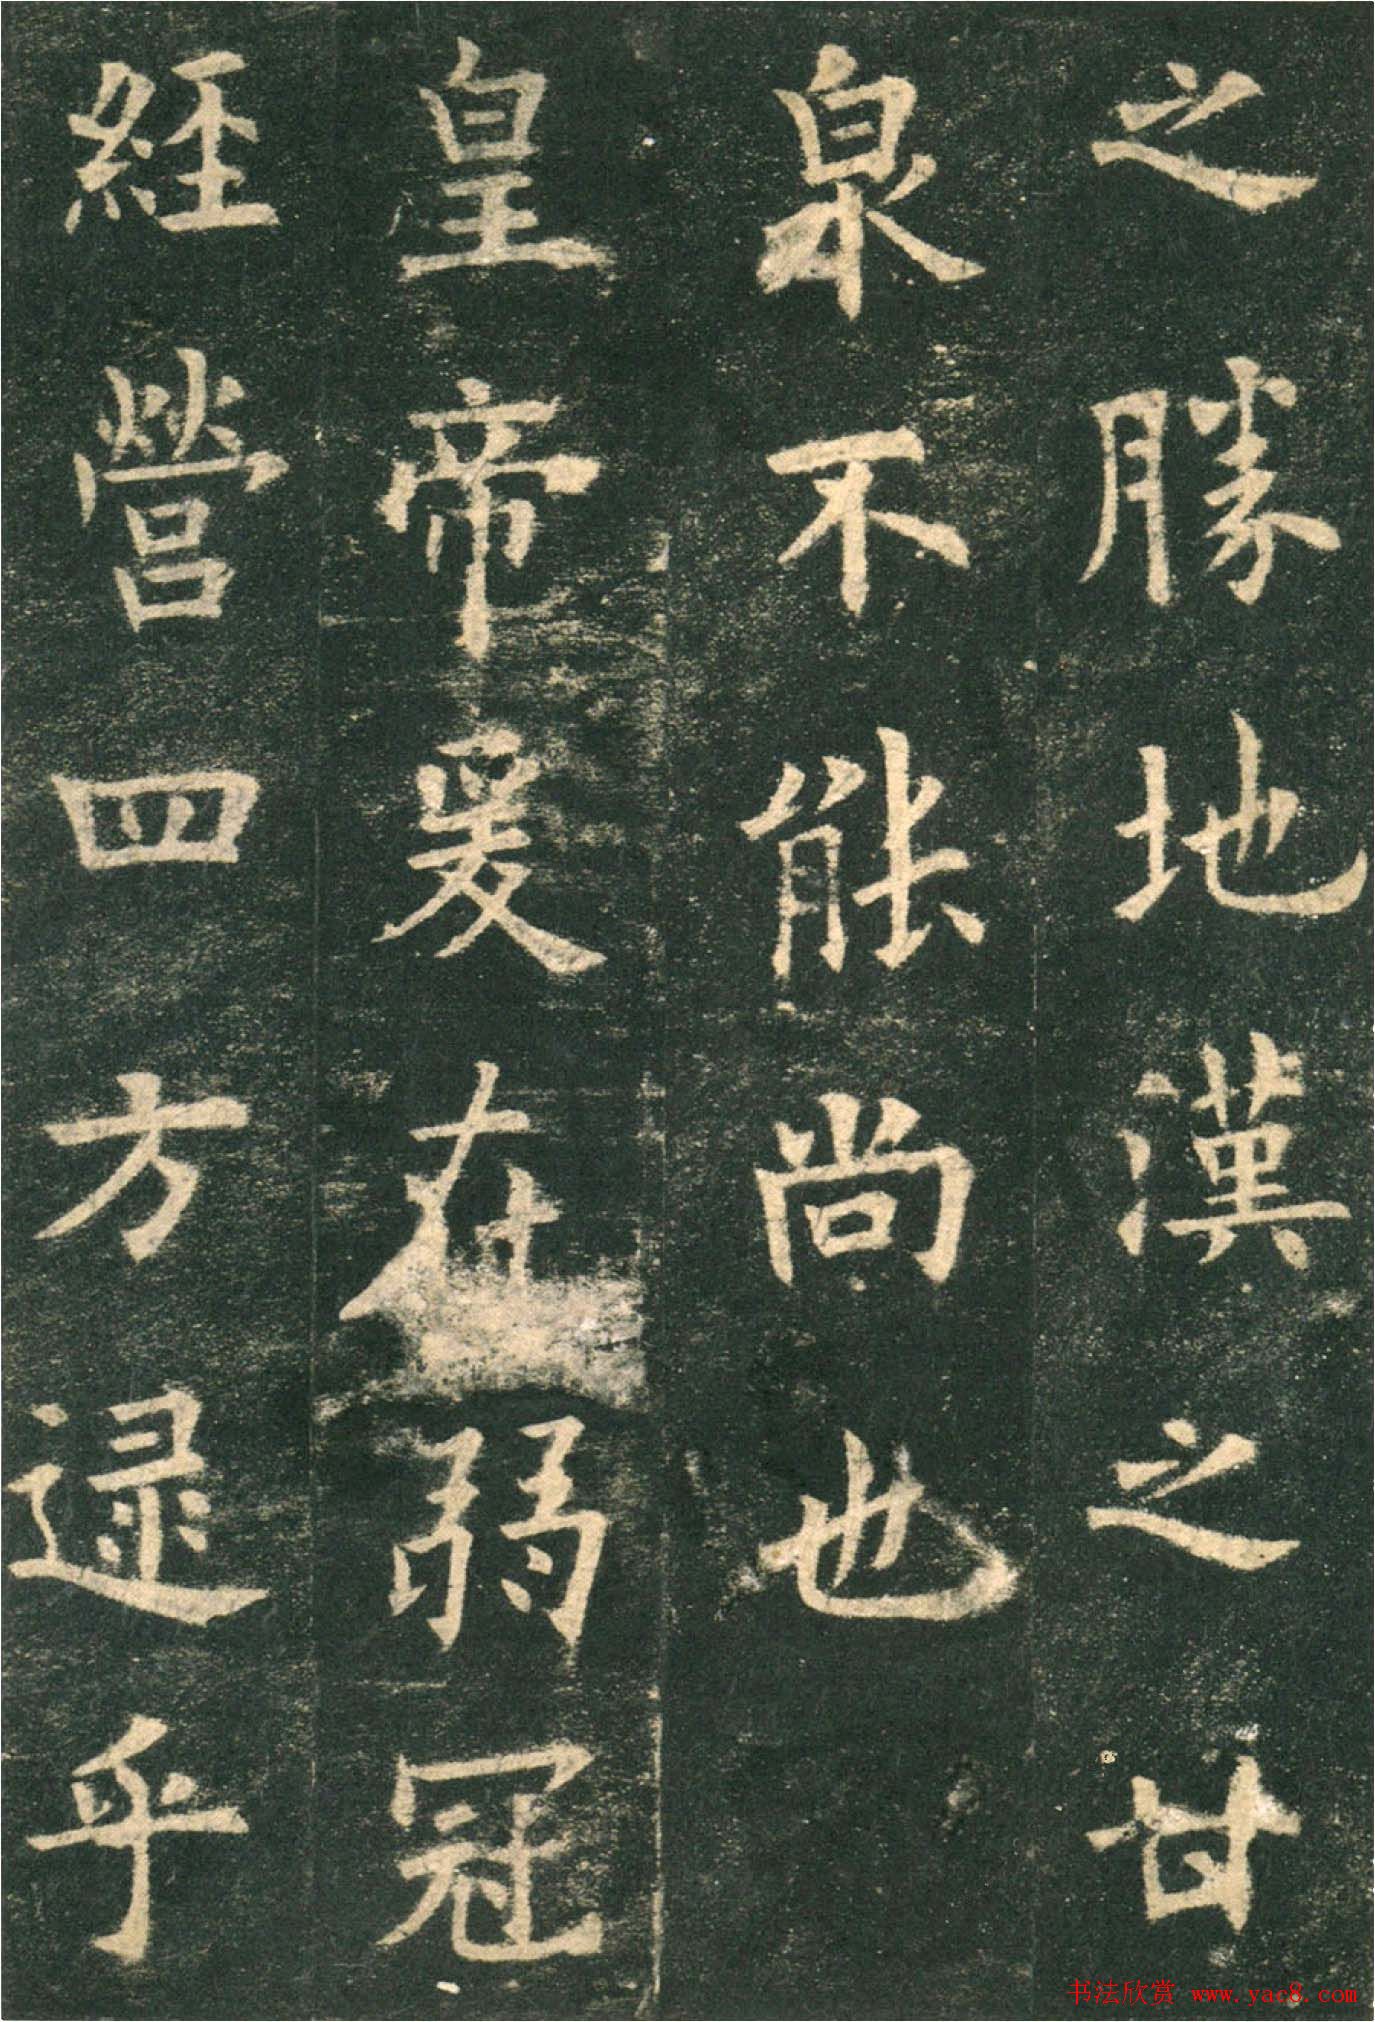 之勝地漢之甘
泉不能尚也
皇帝爰在弱冠
經營四方逯乎
书法欣赏 www.yac8.com